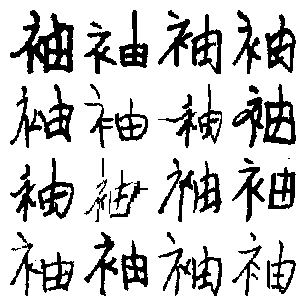 袖袖袖袖
袖袖袖袖
袖袖袖袖
袖袖袖袖